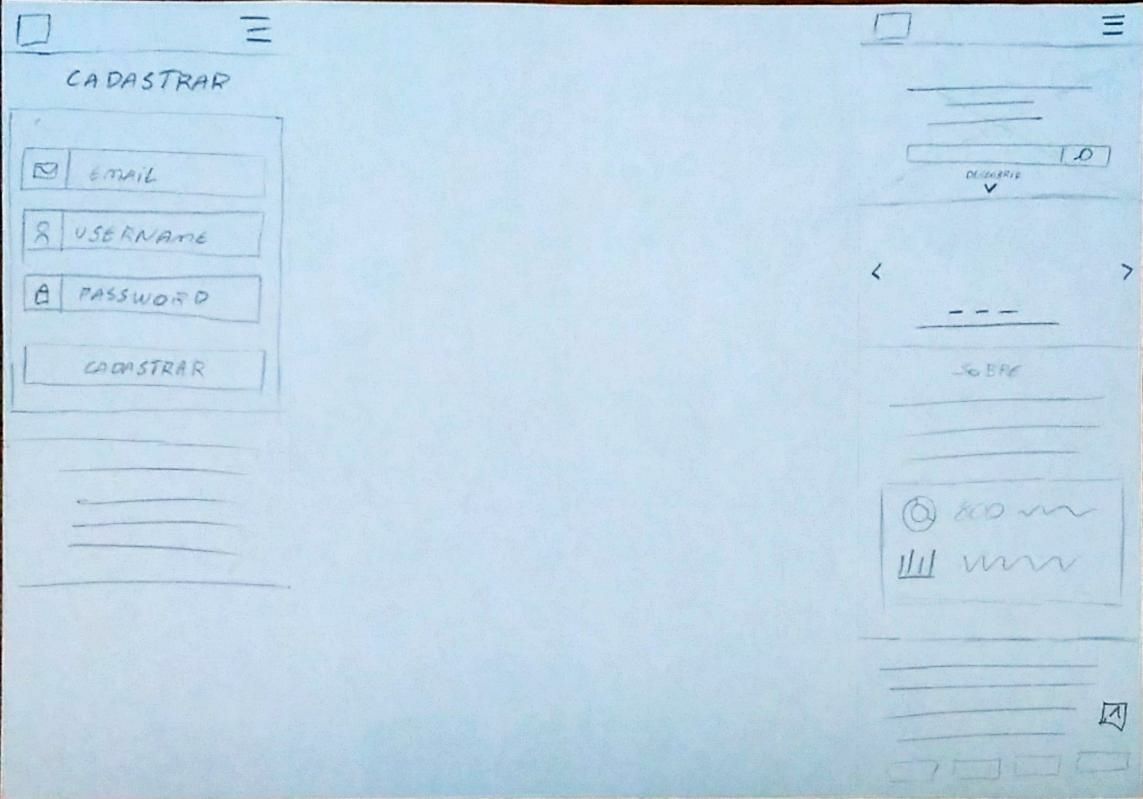 CADASTRAR
EMAIL
USERNAME
PASSWORD
CADASTRAR
DESCOBRIR
SOBRE